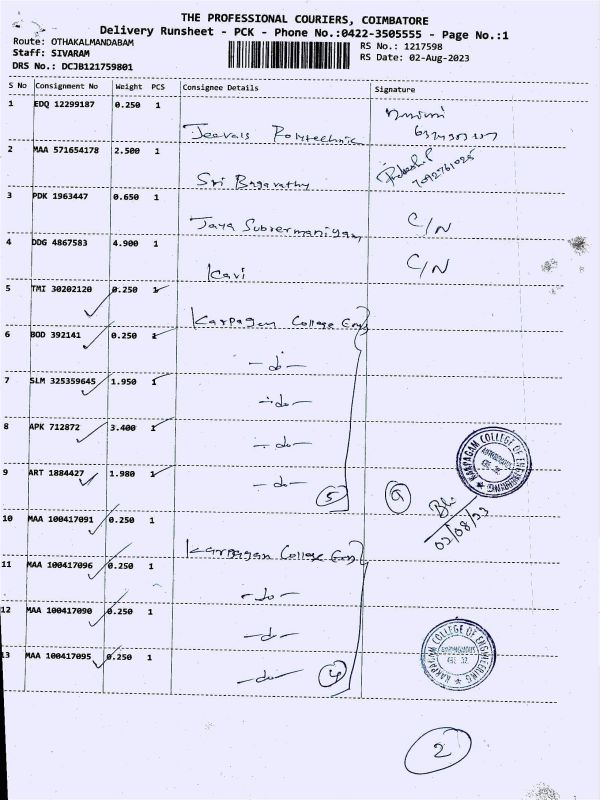 THE PROFESSIONAL COURIERS, COIMBATORE
Delivery Runsheet - PCK - Phone No.:0422-3505555 - Page No.:1
Route: OTHAKALMANDABAM
Staff: SIVARAM
DRS No.: DCJB121759801
RS No.: 1217598
RS Date: 02-Aug-2023
S No Consignment No Weight PCS Consignee Details Signature
1 EDQ 12299187 0.250 1
Jeevals Polytechnic
2 MAA 571654178 2.500 1
Sri Bagavathy
3 PDK 1963447 0.650 1
Jaya Subremaniyam C/N
4 DDG 4867583 4.900 1
Kavi C/N
5 TMI 30202120 0.250 1
Karpagam College Eng
6 BOD 392141 0.250 1
-do-
7 SLM 325359645 1.950 1
-do-
8 APK 712872 3.400 1
-do-
9 ART 1884427 1.980 1
-do- 5
KARPAGAM COLLEGE OF ENGINEERING
02/08/23
10 MAA 100417091 0.250 1
Karpagam College Eng
11 MAA 100417096 0.250 1
-do-
12 MAA 100417090 0.250 1
-do-
13 MAA 100417095 0.250 1
-do- 4
KARPAGAM COLLEGE OF ENGINEERING
2